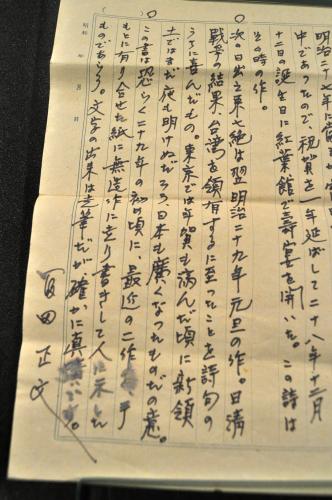 明治二十七年に
中であったので、祝賀を一年延ばして二十八年十二月
十二日の誕生日に紅葉館で壽宴を開いた。この詩は
その時の作。
次の日出之東七絶は翌明治二十九年元旦の作。日清
戦争の結果、台湾を領有するに至ったことを詩句の
うちに喜んだもの。東京では年賀も済んだ頃に新領
土ではまだ夜も明けぬだろう日本も廣くなったものだの意。
この書は恐らく二十九年の初め頃に、最近の二作を、手
もとに有り合せた紙に無造作に走り書きして人に示した
ものであらう。文字の出来は走筆だが、確かに真
です。
富田正文
昭和 年 月 日